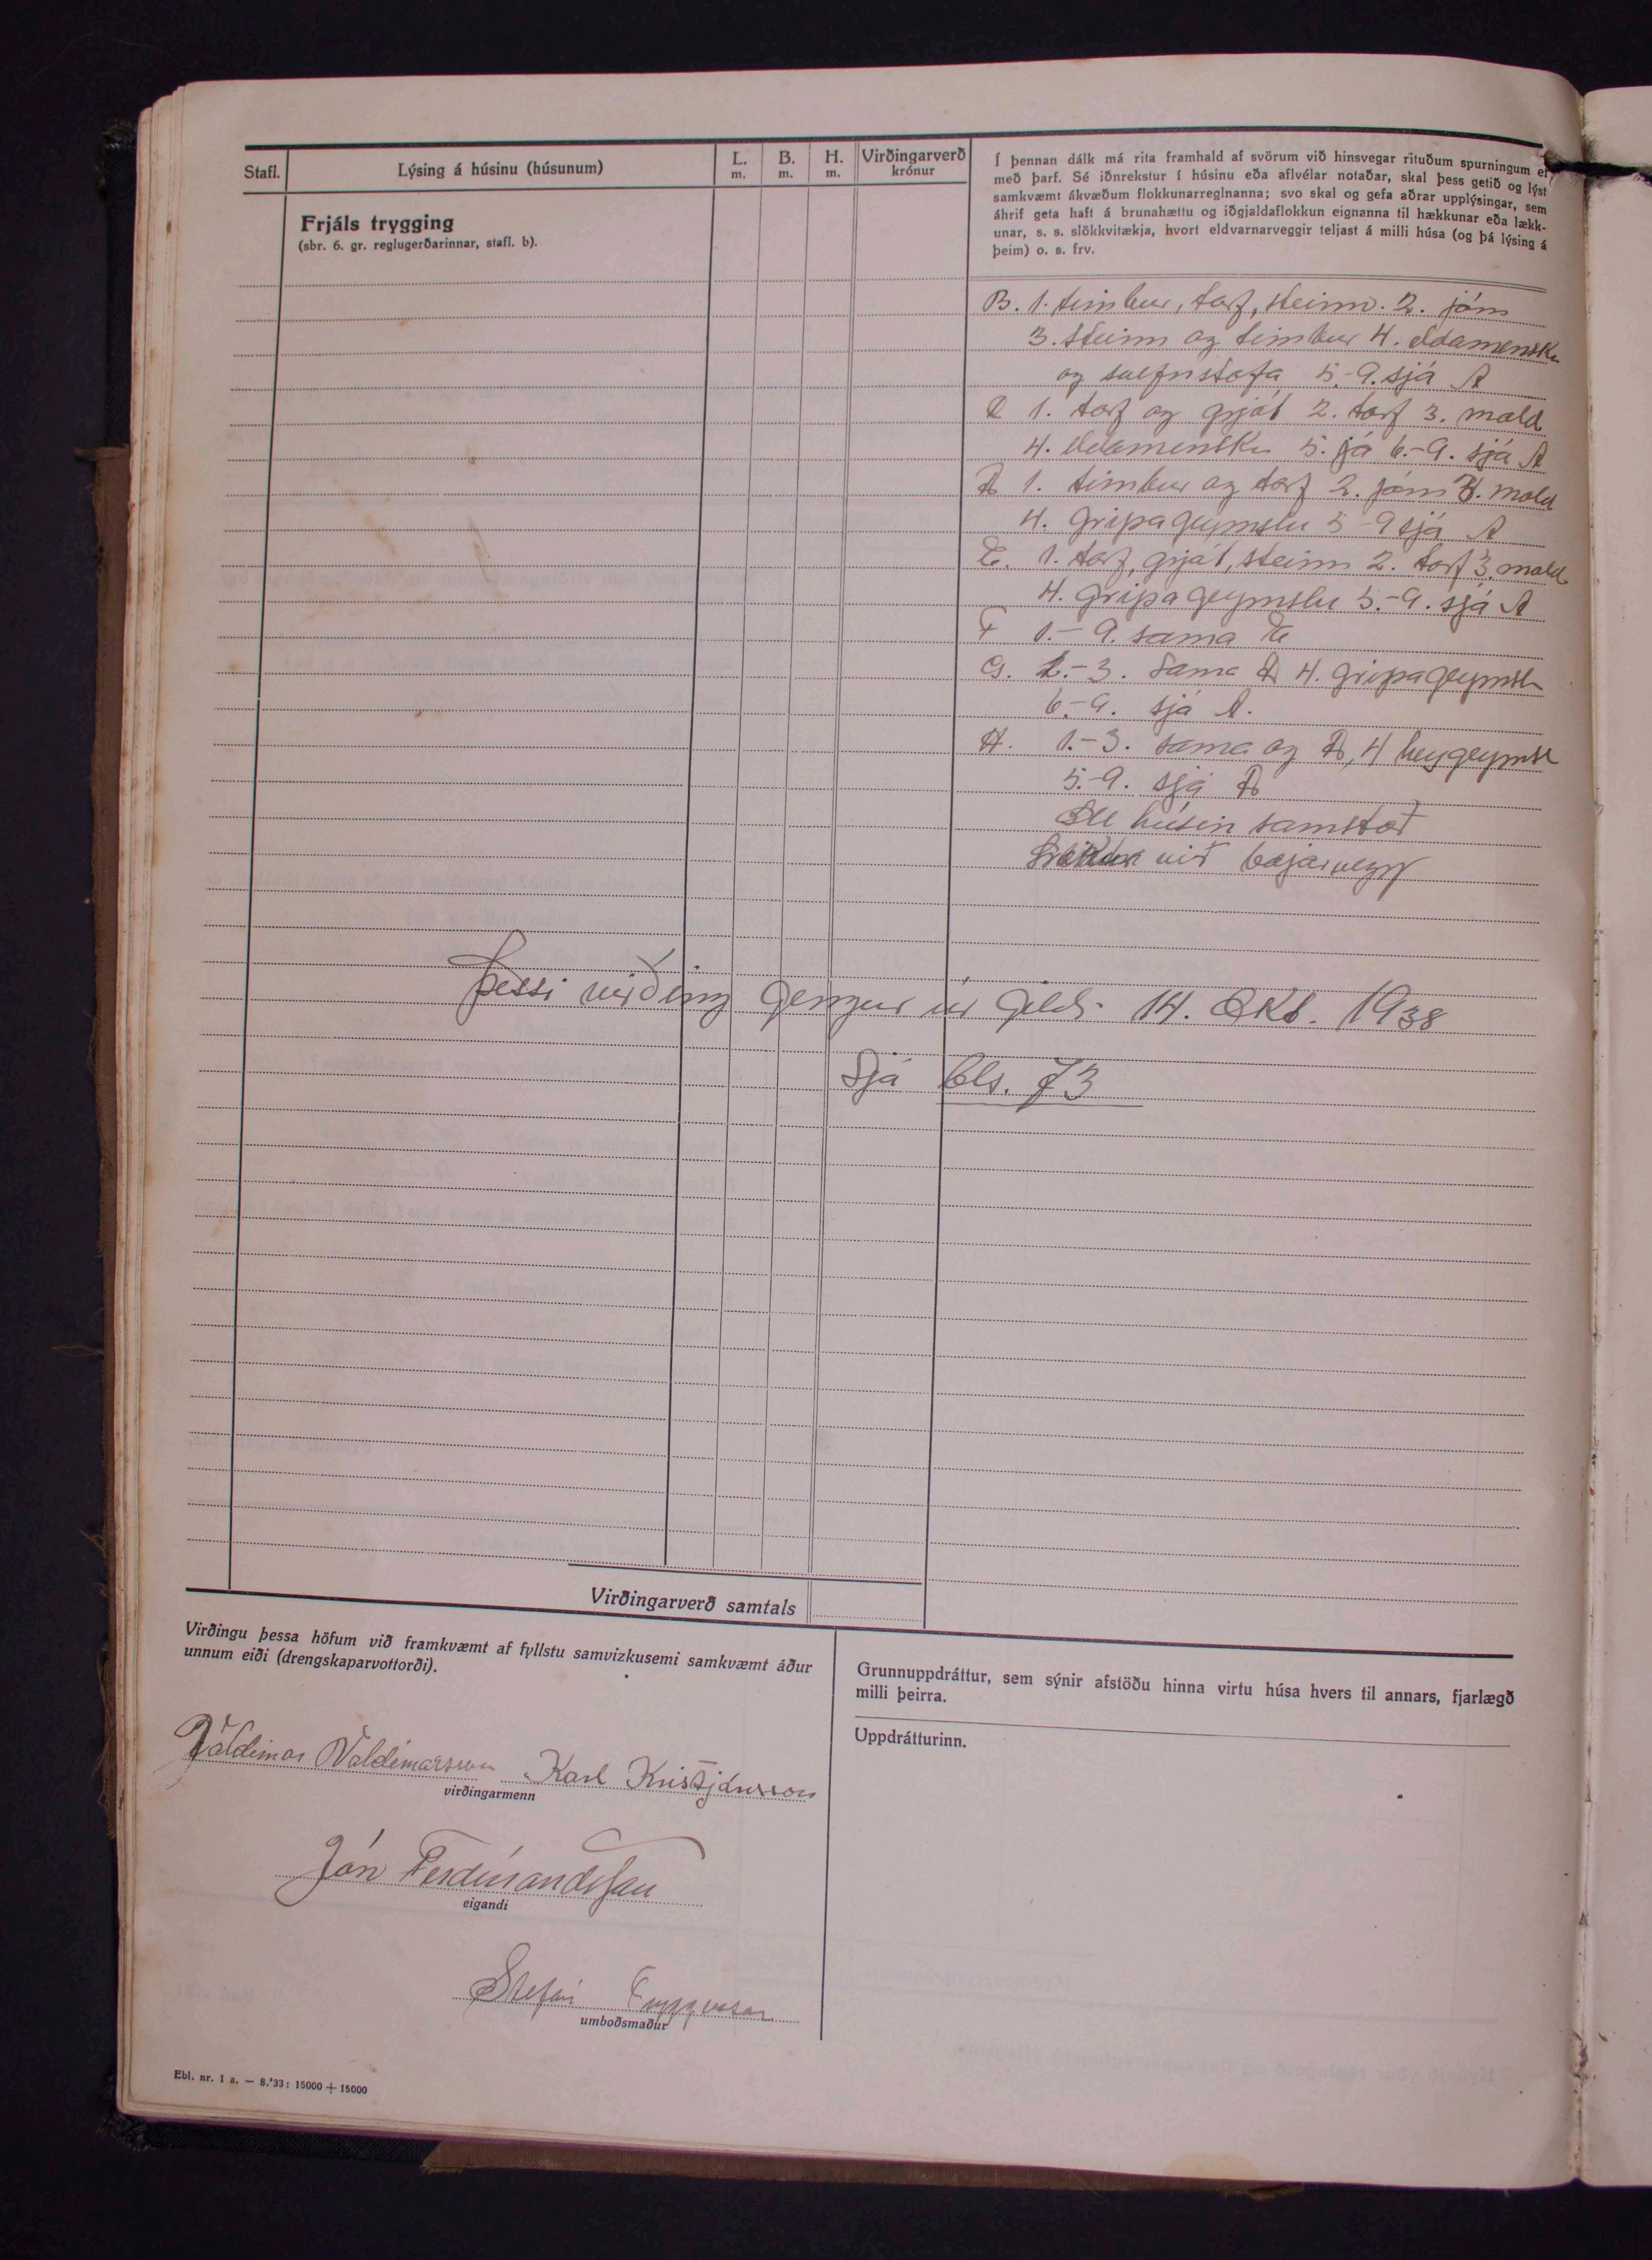 Stafl. Lýsing á húsinu (húsunum) L. m. B. m. H. m. Virðingarverð krónur
Í þennan dálk má rita framhald af svörum við hinsvegar rituðum spurningum ef
með þarf. Sé iðnrekstur í húsinu eða aflvélar notaðar, skal þess getið og lýst
samkvæmt ákvæðum flokkunarreglnanna; svo skal og gefa aðrar upplýsingar, sem
áhrif geta haft á brunahættu og iðgjaldaflokkun eignanna til hækkunar eða lækk-
unar, s. s. slökkvitækja, hvort eldvarnarveggir teljast á milli húsa (og þá lýsing á
þeim) o. s. frv.
Frjáls trygging
(sbr. 6. gr. reglugerðarinnar, stafl. b).
B. 1. timbur, torf, steinn. 2. járn
3. steinn og timbur 4. eldamensku
og svefnstofa 5.-9. sjá A
C 1. torf og grjót 2. torf 3. mold
4. eldamensku 5. já 6.-9. sjá A
D 1. timbur og torf 2. járn 3. mold
4. gripageymslu 5-9 sjá A
E. 1. torf, grjót, steinn 2. torf 3. mold
4. gripageymslu 5.-9. sjá A
F 1.-9. sama E
G. 1.-3. Sama D 4. gripageymsla
6.-9. sjá A.
H. 1.-3. sama og D, 4 heygeymsl
5.-9. sjá D
Öll húsin samstæð
við bæjarvegg
Þessi virðing gengur úr gildi 14. Okt. 1938
Sjá bls. 73
Virðingarverð samtals
Virðingu þessa höfum við framkvæmt af fyllstu samvizkusemi samkvæmt áður
unnum eiði (drengskaparvottorði).
Valdimar Valdimarsson Karl Kristjánsson
virðingarmenn
Jón Ferdínandsson
eigandi
Stefán Tryggvason
umboðsmaður
Grunnuppdráttur, sem sýnir afstöðu hinna virtu húsa hvers til annars, fjarlægð
milli þeirra.
Uppdrátturinn.
Ebl. nr. 1 a. — 8.'33: 15000 + 15000